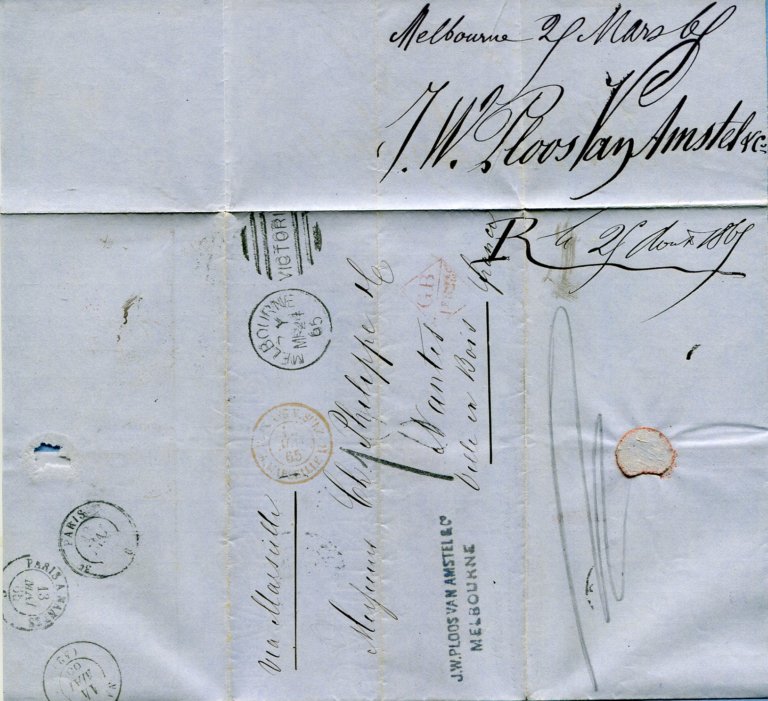 Melbourne 25 Mars 65
J. W. Ploos Van Amstel & Co
R le 25 Août 1865
VICTORI
MELBOURNE
MR 24
65
GB
1F
Via Marseille
Messieurs Ch Philippe & C
Nantes
Ville en Bois
France
J.W. PLOOS VAN AMSTEL & Co
MELBOURNE
65
PARIS
PARIS A NAN
13
MAI
14
MAI